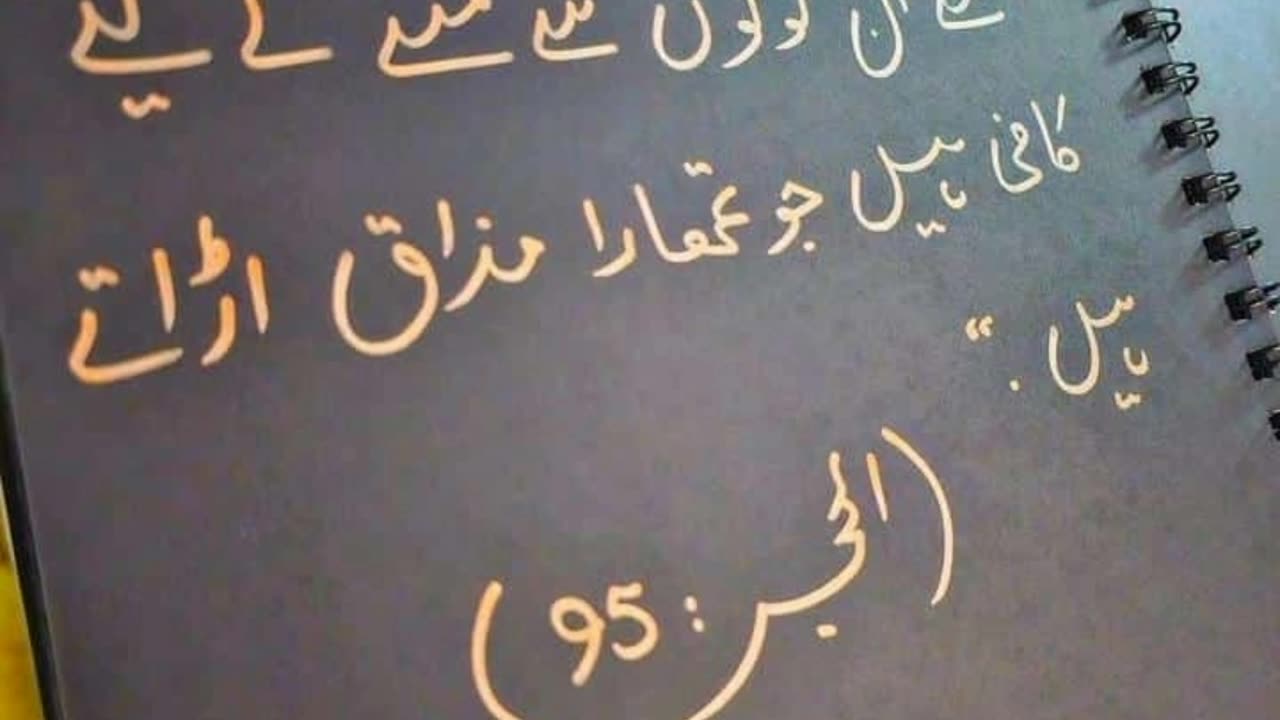 ان لوگوں سے نمٹنے کے لیے
کافی ہیں جو تمھارا مذاق اڑاتے
ہیں ."
(الحجر: 95)